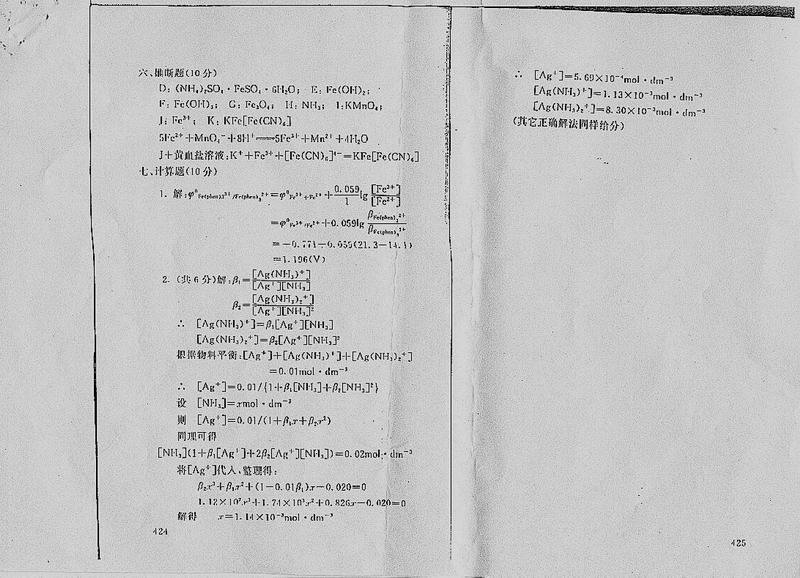 六、推断题(10分)
D: (NH₄)₂SO₄·FeSO₄·6H₂O; E: Fe(OH)₂;
F: Fe(OH)₃; G: Fe₃O₄; H: NH₃; I: KMnO₄;
J: Fe³⁺; K: KFe[Fe(CN)₆]
5Fe²⁺+MnO₄⁻+8H⁺══5Fe³⁺+Mn²⁺+4H₂O
J+黄血盐溶液:K⁺+Fe³⁺+[Fe(CN)₆]⁴⁻=KFe[Fe(CN)₆]
七、计算题(10分)
1. 解:φ⁰Fe(phen)₃³⁺/Fe(phen)₃²⁺=φ⁰Fe³⁺/Fe²⁺+0.059/1 lg [Fe³⁺]/[Fe²⁺]
=φ⁰Fe³⁺/Fe²⁺+0.059lg βFe(phen)₃²⁺/βFe(phen)₃³⁺
=1.196(V)
2. (共6分)解:β₁=[Ag(NH₃)⁺]/[Ag⁺][NH₃]
β₂=[Ag(NH₃)₂⁺]/[Ag⁺][NH₃]²
∴ [Ag(NH₃)⁺]=β₁[Ag⁺][NH₃]
[Ag(NH₃)₂⁺]=β₂[Ag⁺][NH₃]²
根据物料平衡:[Ag⁺]+[Ag(NH₃)⁺]+[Ag(NH₃)₂⁺]
=0.01mol·dm⁻³
∴ [Ag⁺]=0.01/{1+β₁[NH₃]+β₂[NH₃]²}
设 [NH₃]=xmol·dm⁻³
则 [Ag⁺]=0.01/(1+β₁x+β₂x²)
同理可得
[NH₃](1+β₁[Ag⁺]+2β₂[Ag⁺][NH₃])=0.02mol·dm⁻³
将[Ag⁺]代入、整理得:
β₂x³+β₁x²+(1-0.01β₁)x-0.020=0
1.12×10⁷x³+1.74×10³x²+0.826x-0.020=0
解得 x=1.14×10⁻³mol·dm⁻³
424
∴ [Ag⁺]=5.69×10⁻⁴mol·dm⁻³
[Ag(NH₃)⁺]=1.13×10⁻³mol·dm⁻³
[Ag(NH₃)₂⁺]=8.30×10⁻³mol·dm⁻³
(其它正确解法同样给分)
425